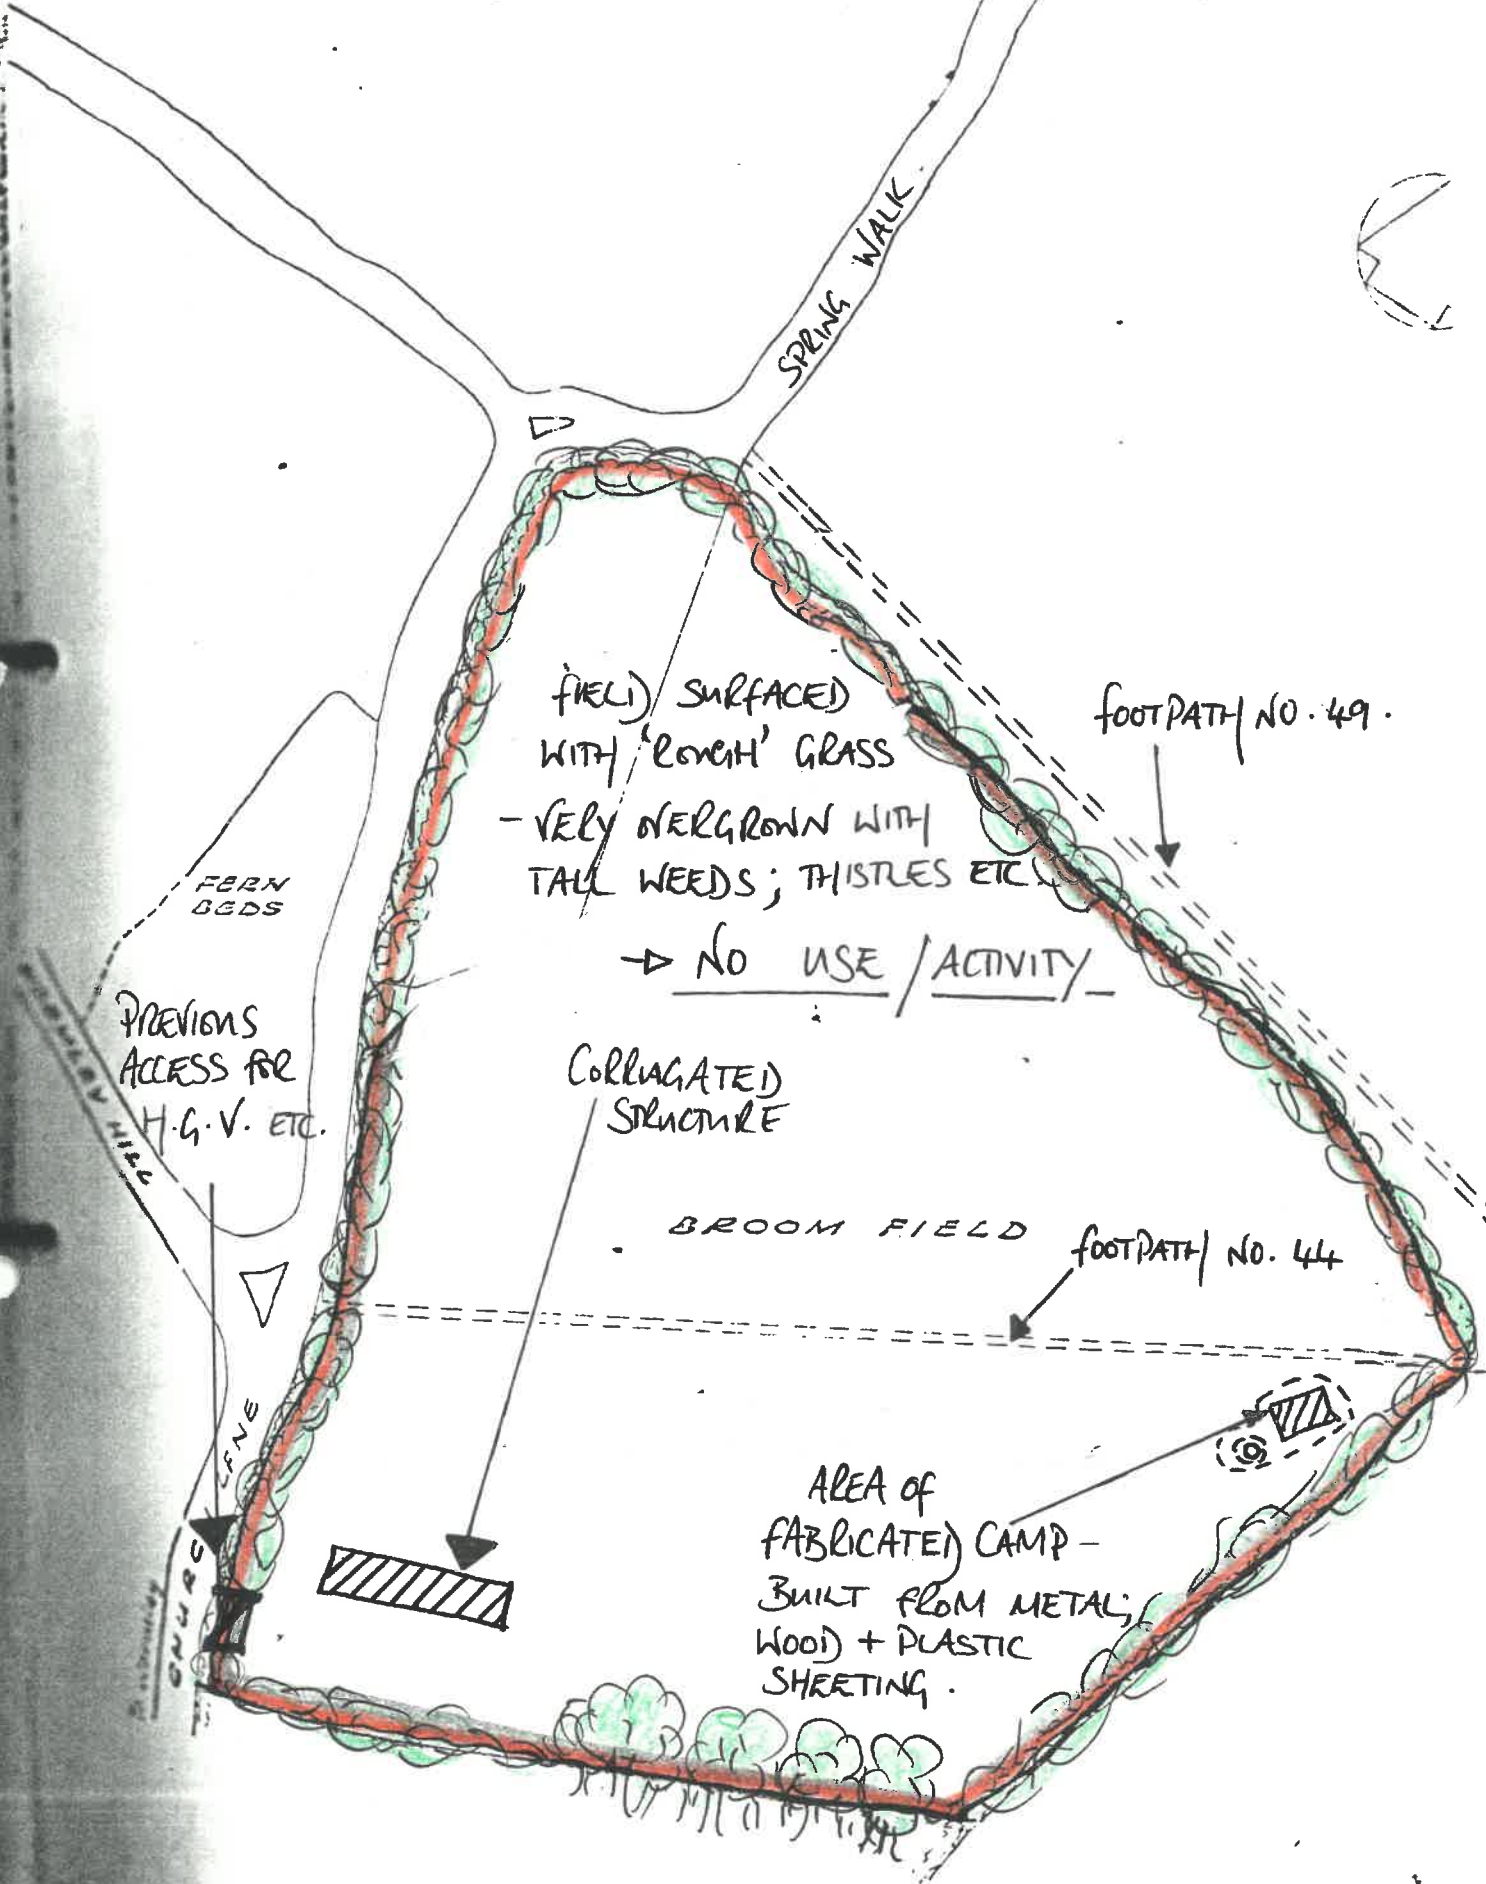 SPRING WALK.
FIELD SURFACED
WITH 'ROUGH' GRASS
- VERY OVERGROWN WITH
TALL WEEDS; THISTLES ETC.
→ NO USE / ACTIVITY
FOOTPATH NO. 49.
FERN
BEDS
PREVIOUS
ACCESS FOR
H.G.V. ETC.
HILL
CORRUGATED
STRUCTURE
BROOM FIELD
FOOTPATH NO. 44
AREA OF
FABRICATED CAMP -
BUILT FROM METAL;
WOOD + PLASTIC
SHEETING.